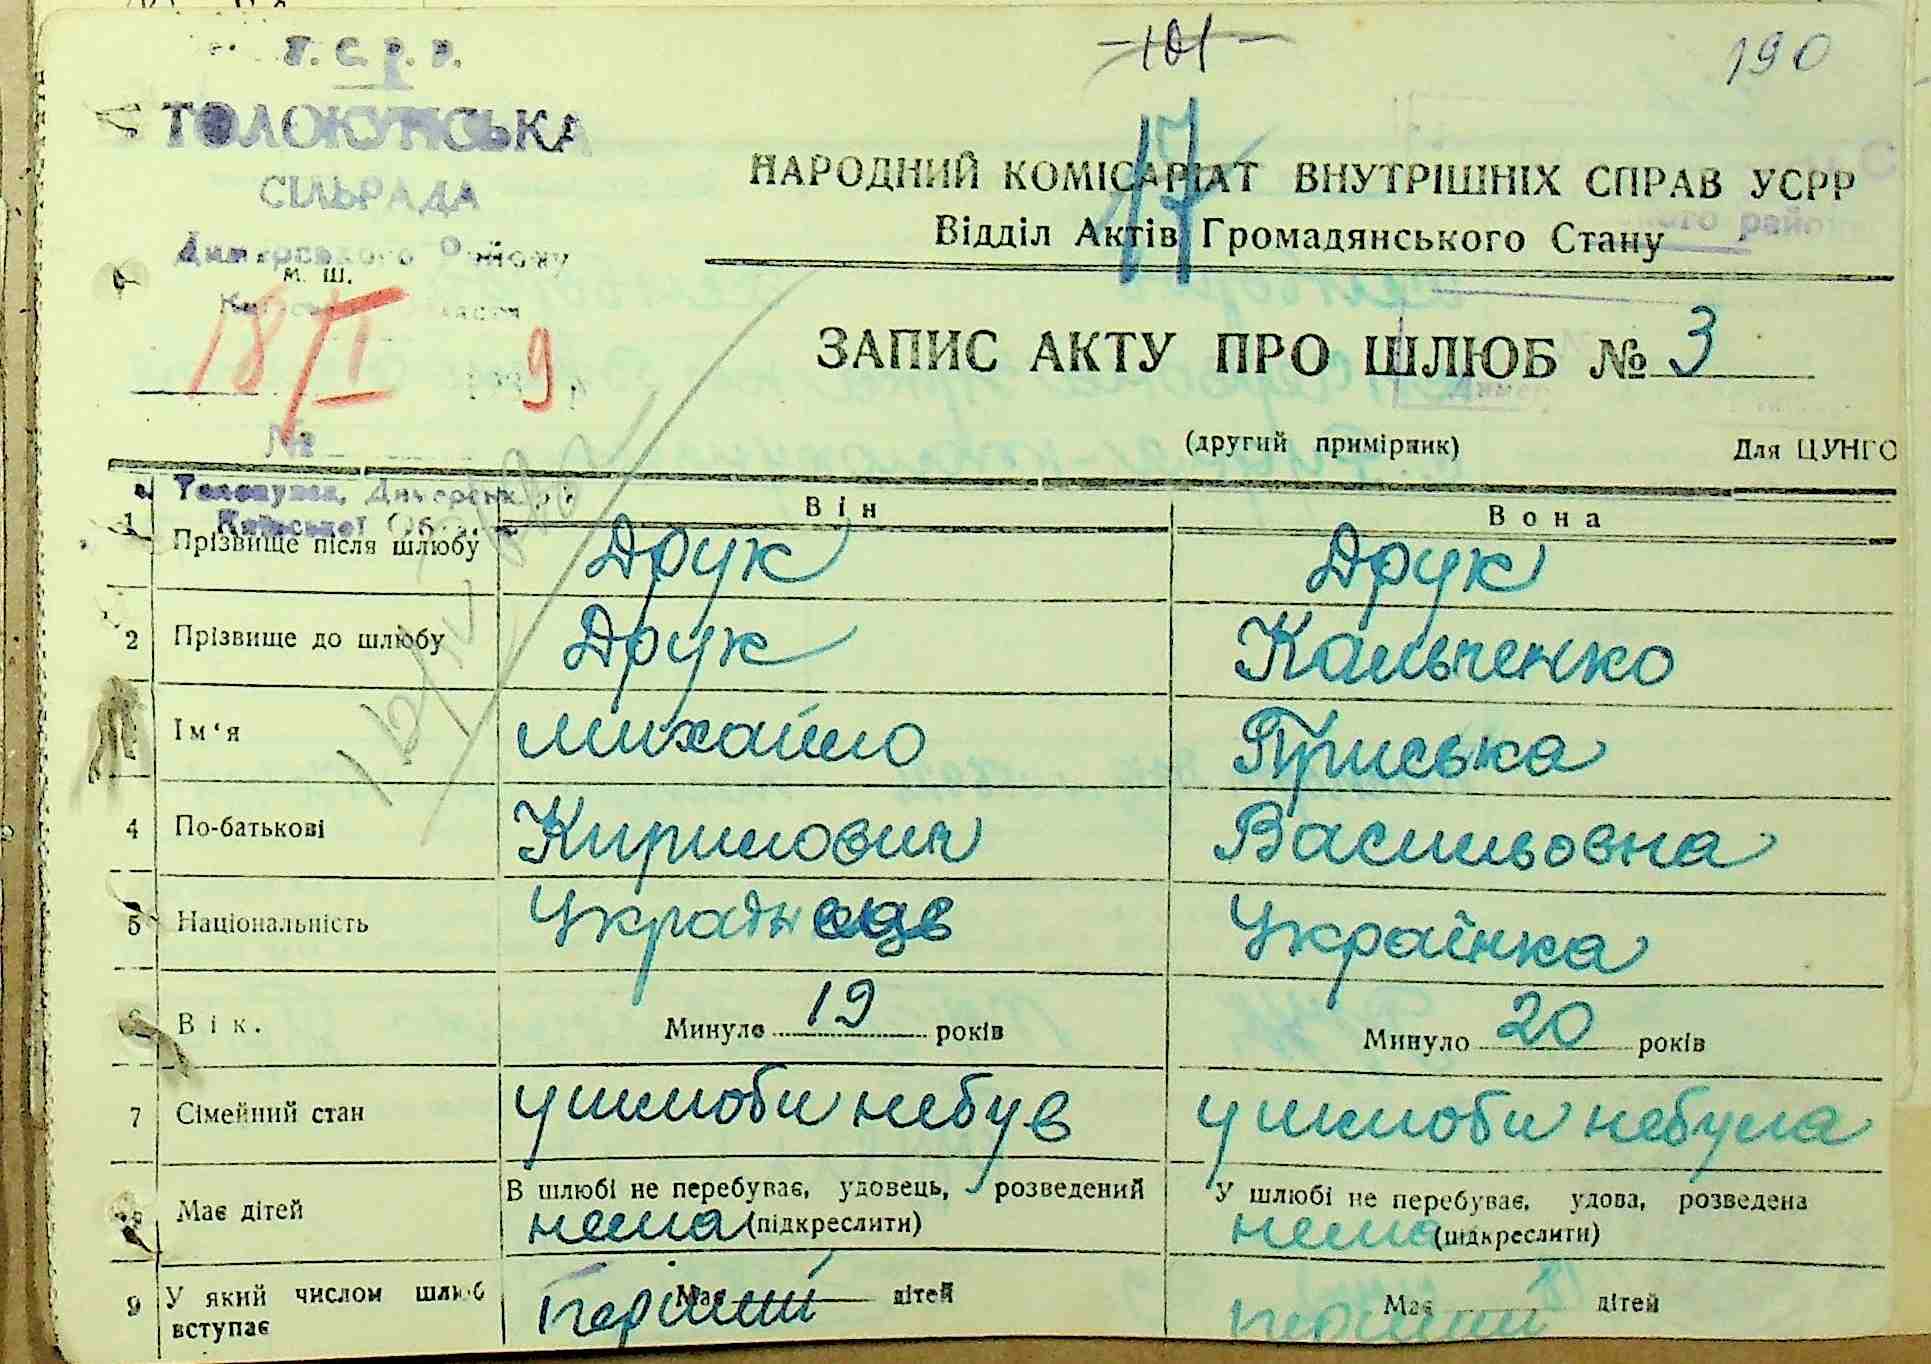 101
190
У.С.Р.Р.
ТОЛОКУНСЬКА
СІЛЬРАДА
Димерського Району
м. ш.
18/І 9
№
17
НАРОДНИЙ КОМІСАРІАТ ВНУТРІШНІХ СПРАВ УСРР
Відділ Актів Громадянського Стану
ЗАПИС АКТУ ПРО ШЛЮБ № 3
(другий примірник) Для ЦУНГО
Київської
Він Вона
1 Прізвище після шлюбу Друк Друк
2 Прізвище до шлюбу Друк Кальченко
Ім‘я михайло Приська
4 По-батькові Кирилович Васильовна
5 Національність Украінець Украінка
6 Вік. Минуло 19 років Минуло 20 років
7 Сімейний стан у шлюби небув у шлюби небула
В шлюбі не перебуває, удовець, розведений У шлюбі не перебуває, удова, розведена
Має дітей нема (підкреслити) нема (підкреслити)
Має дітей Має дітей
9 У який числом шлюб вступає перший перший